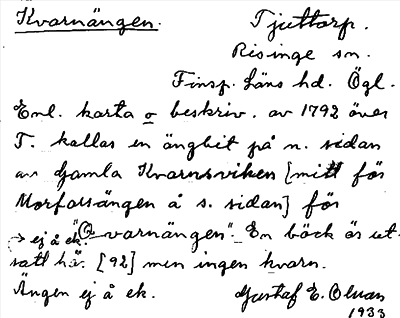 Kvarnängen. Tjuttorp.
Risinge sn.
Finsp. Läns hd. Ögl.
Enl. karta o beskriv. av 1792 över
T. kallas en ängbit på n. sidan
av Gamla Kvarnsviken [mitt för
Morfarsängen å s. sidan] för
→ ej å ek. "Qvarnängen". En bäck är ut-
satt här [92] men ingen kvarn.
Ängen ej å ek. Gustaf E. Olman
1933